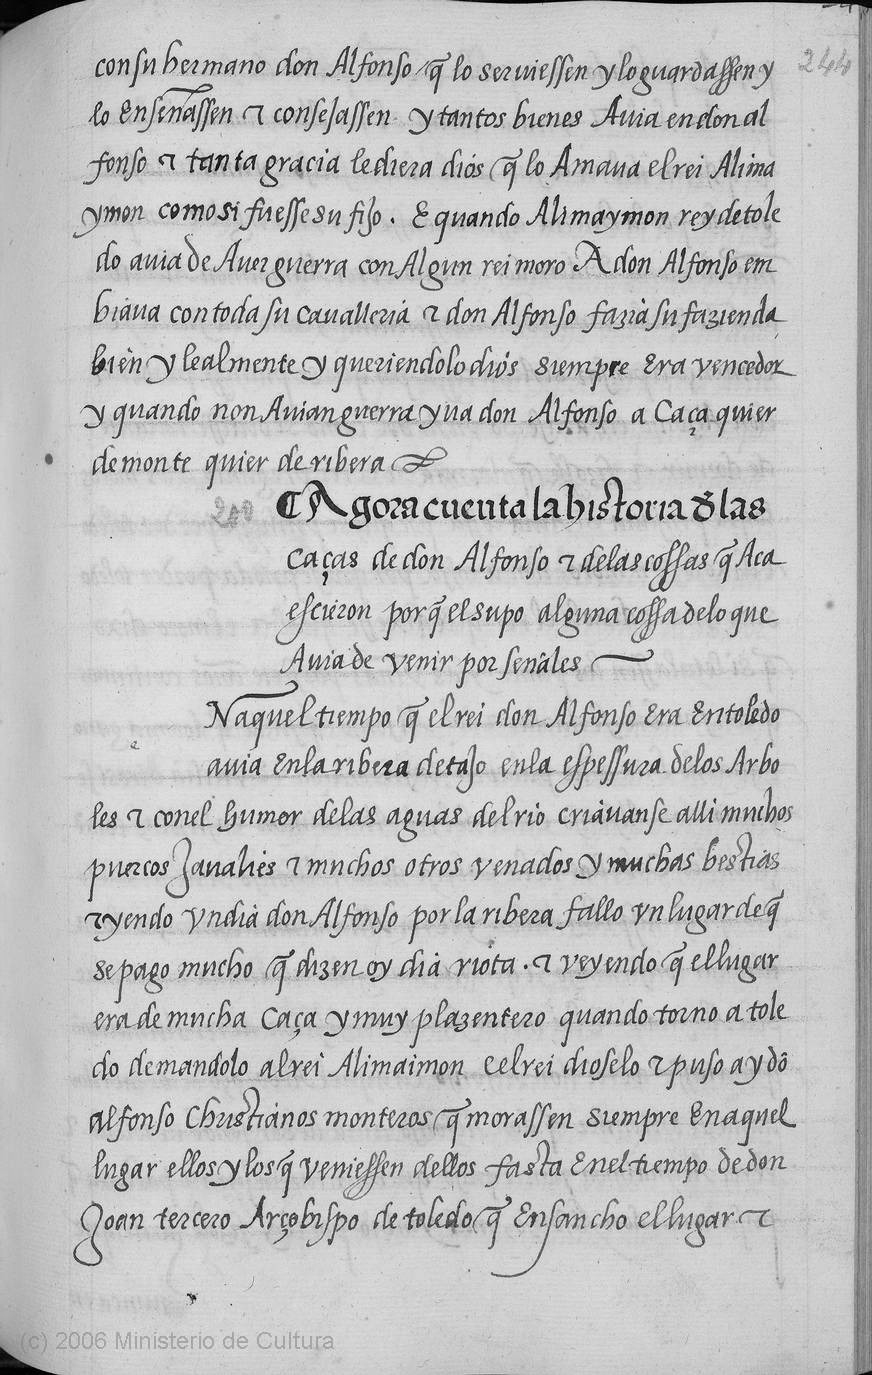 244
con su hermano don Alfonso q̃ lo seruiessen y lo guardassen y
lo Enseñassen τ consejassen y tantos bienes Auia en don al
fonso τ tanta gracia le diera dios q̃ lo Amaua el rei Alima
ymon como si fuesse su fijo . E quando Alimaymon rey de tole
do auia de Auer guerra con Algun rei moro A don Alfonso em
biaua con toda su cavalleria τ don Alfonso fazia su fazienda
bien y lealmente y queriendolo dios siempre Era vencedor
y quando non Auian guerra yua don Alfonso a Caça quier
de monte quier de ribera
Agora cuenta la historia d̃ las
caças de don Alfonso τ de las cossas q̃ Aca
escieron por q̃ el supo alguna cossa de lo que
Auia de venir por señales
Naquel tiempo q̃ el rei don Alfonso Era En toledo
auia En la ribera de tajo en la espessura de los Arbo
les τ con el humor de las aguas del rio criauanse alli muchos
puercos Jaualies τ muchos otros venados y muchas bestias
τ yendo vn dia don Alfonso por la ribera fallo vn lugar de q̃
se pago mucho q̃ dizen oy dia riota . τ veyendo q̃ el lugar
era de mucha Caça y muy plazentero quando torno a tole
do demandolo al rei Alimaimon E el rei dioselo τ puso ay dõ
alfonso Christianos monteros q̃ morassen siempre En aquel
lugar ellos y los q̃ veniessen dellos fasta En el tiempo de don
Joan tercero Arçobispo de toledo q̃ Ensancho el lugar τ
(c) 2006 Ministerio de Cultura